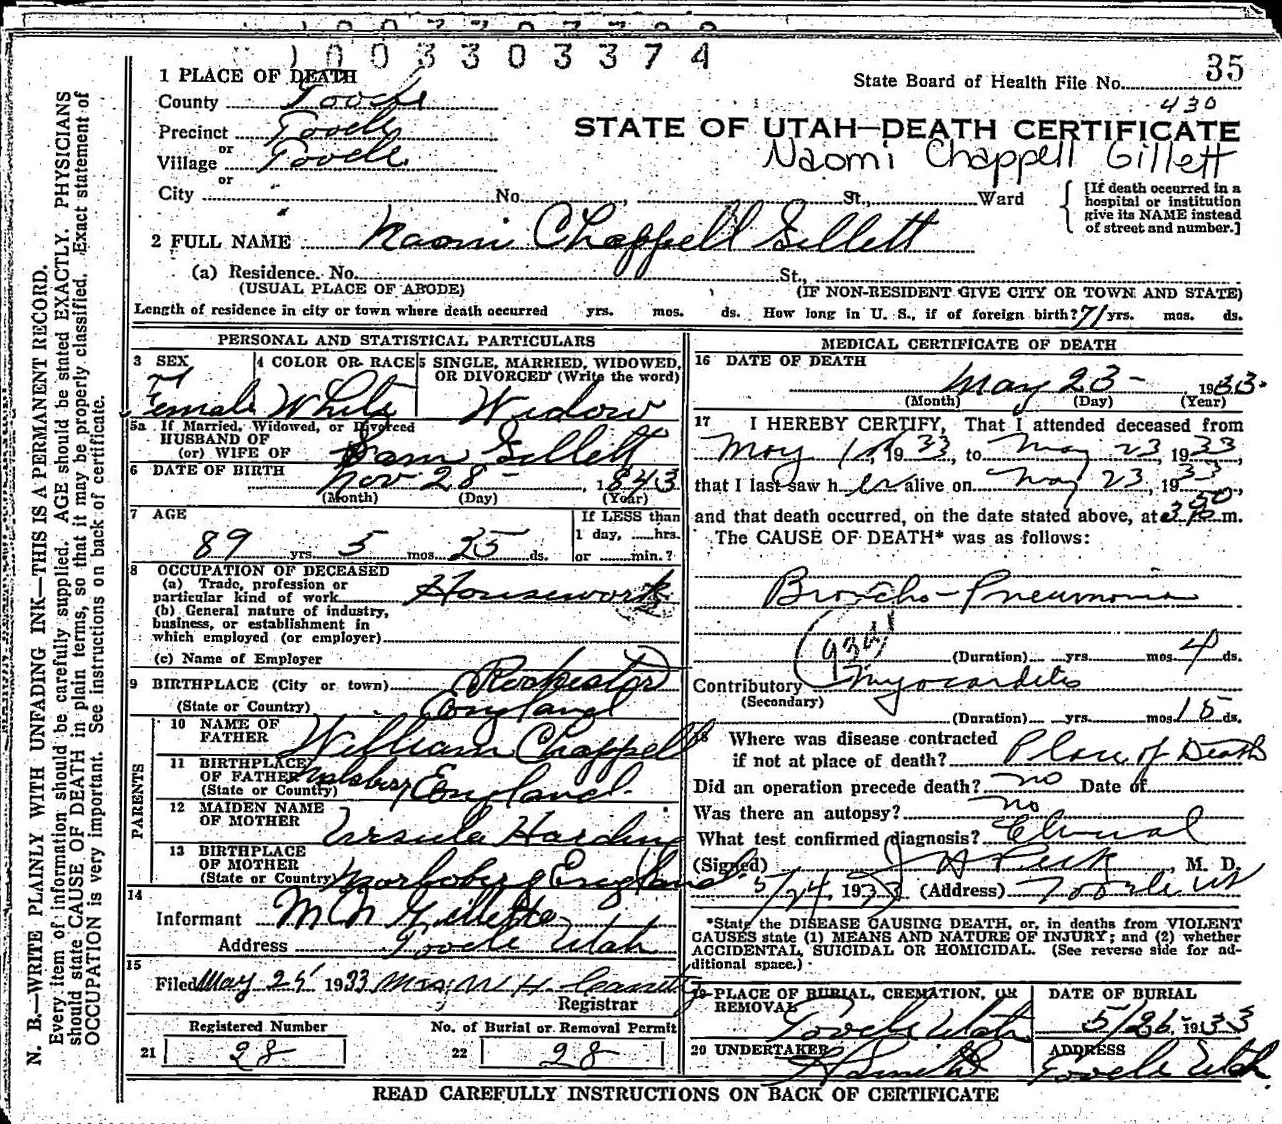 1003303374
35
State Board of Health File No.
430
1 PLACE OF DEATH
County Tooele
Precinct Tooele
or
Village Tooele
or
City No. St., Ward
STATE OF UTAH—DEATH CERTIFICATE
Naomi Chappell Gillett
[If death occurred in a
hospital or institution
give its NAME instead
of street and number.]
2 FULL NAME Naomi Chappell Gillett
(a) Residence. No. St.,
(USUAL PLACE OF ABODE) (IF NON-RESIDENT GIVE CITY OR TOWN AND STATE)
Length of residence in city or town where death occurred yrs. mos. ds. How long in U. S., if of foreign birth? 71 yrs. mos. ds.
N. B.—WRITE PLAINLY WITH UNFADING INK—THIS IS A PERMANENT RECORD.
Every item of information should be carefully supplied. AGE should be stated EXACTLY. PHYSICIANS
should state CAUSE OF DEATH in plain terms, so that it may be properly classified. Exact statement of
OCCUPATION is very important. See instructions on back of certificate.
PERSONAL AND STATISTICAL PARTICULARS
3 SEX 4 COLOR OR RACE 5 SINGLE, MARRIED, WIDOWED,
OR DIVORCED (Write the word)
Female White Widow
5a If Married, Widowed, or Divorced
HUSBAND OF
(or) WIFE OF Sam Gillett
6 DATE OF BIRTH Nov 28 - 1843
(Month) (Day) (Year)
7 AGE If LESS than
1 day, hrs.
89 yrs 5 mos 25 ds. or min.?
8 OCCUPATION OF DECEASED
(a) Trade, profession or
particular kind of work Housework
(b) General nature of industry,
business, or establishment in
which employed (or employer)
(c) Name of Employer
9 BIRTHPLACE (City or town) Rochester
(State or Country) England
PARENTS
10 NAME OF
FATHER William Chappell
11 BIRTHPLACE
OF FATHER
(State or Country) England
12 MAIDEN NAME
OF MOTHER Ursula Harding
13 BIRTHPLACE
OF MOTHER
(State or Country) England
14
Informant Gillette
Address Tooele Utah
15
Filed May 25 1933 Mrs W H
Registrar
Registered Number No. of Burial or Removal Permit
21 28 22 28
MEDICAL CERTIFICATE OF DEATH
16 DATE OF DEATH
May 23 - 1933.
(Month) (Day) (Year)
17 I HEREBY CERTIFY, That I attended deceased from
May 1933, to May 23 1933,
that I last saw her alive on May 23, 1933,
and that death occurred, on the date stated above, at m.
The CAUSE OF DEATH* was as follows:
Broncho-Pneumonia
93a
(Duration) yrs. mos. 4 ds.
Contributory Myocarditis
(Secondary)
(Duration) yrs. mos. 15 ds.
18 Where was disease contracted
if not at place of death? Place of Death
Did an operation precede death? no Date of
Was there an autopsy? no
What test confirmed diagnosis? Clinical
(Signed) J H Peck, M. D.
5/24 1933 (Address) Tooele Ut
*State the DISEASE CAUSING DEATH, or, in deaths from VIOLENT
CAUSES state (1) MEANS AND NATURE OF INJURY; and (2) whether
ACCIDENTAL, SUICIDAL OR HOMICIDAL. (See reverse side for ad-
ditional space.)
19 PLACE OF BURIAL, CREMATION, OR
REMOVAL
Tooele Utah
DATE OF BURIAL
5/26 1933
20 UNDERTAKER
ADDRESS
Tooele Utah
READ CAREFULLY INSTRUCTIONS ON BACK OF CERTIFICATE